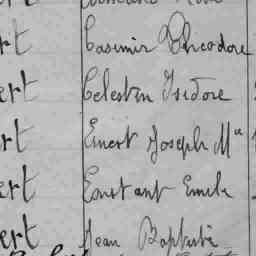 rt Casimir Théodore
ert Celestin Isidore
rt Ernest Joseph Mie
ert Constant Emile
ert Jean Baptiste